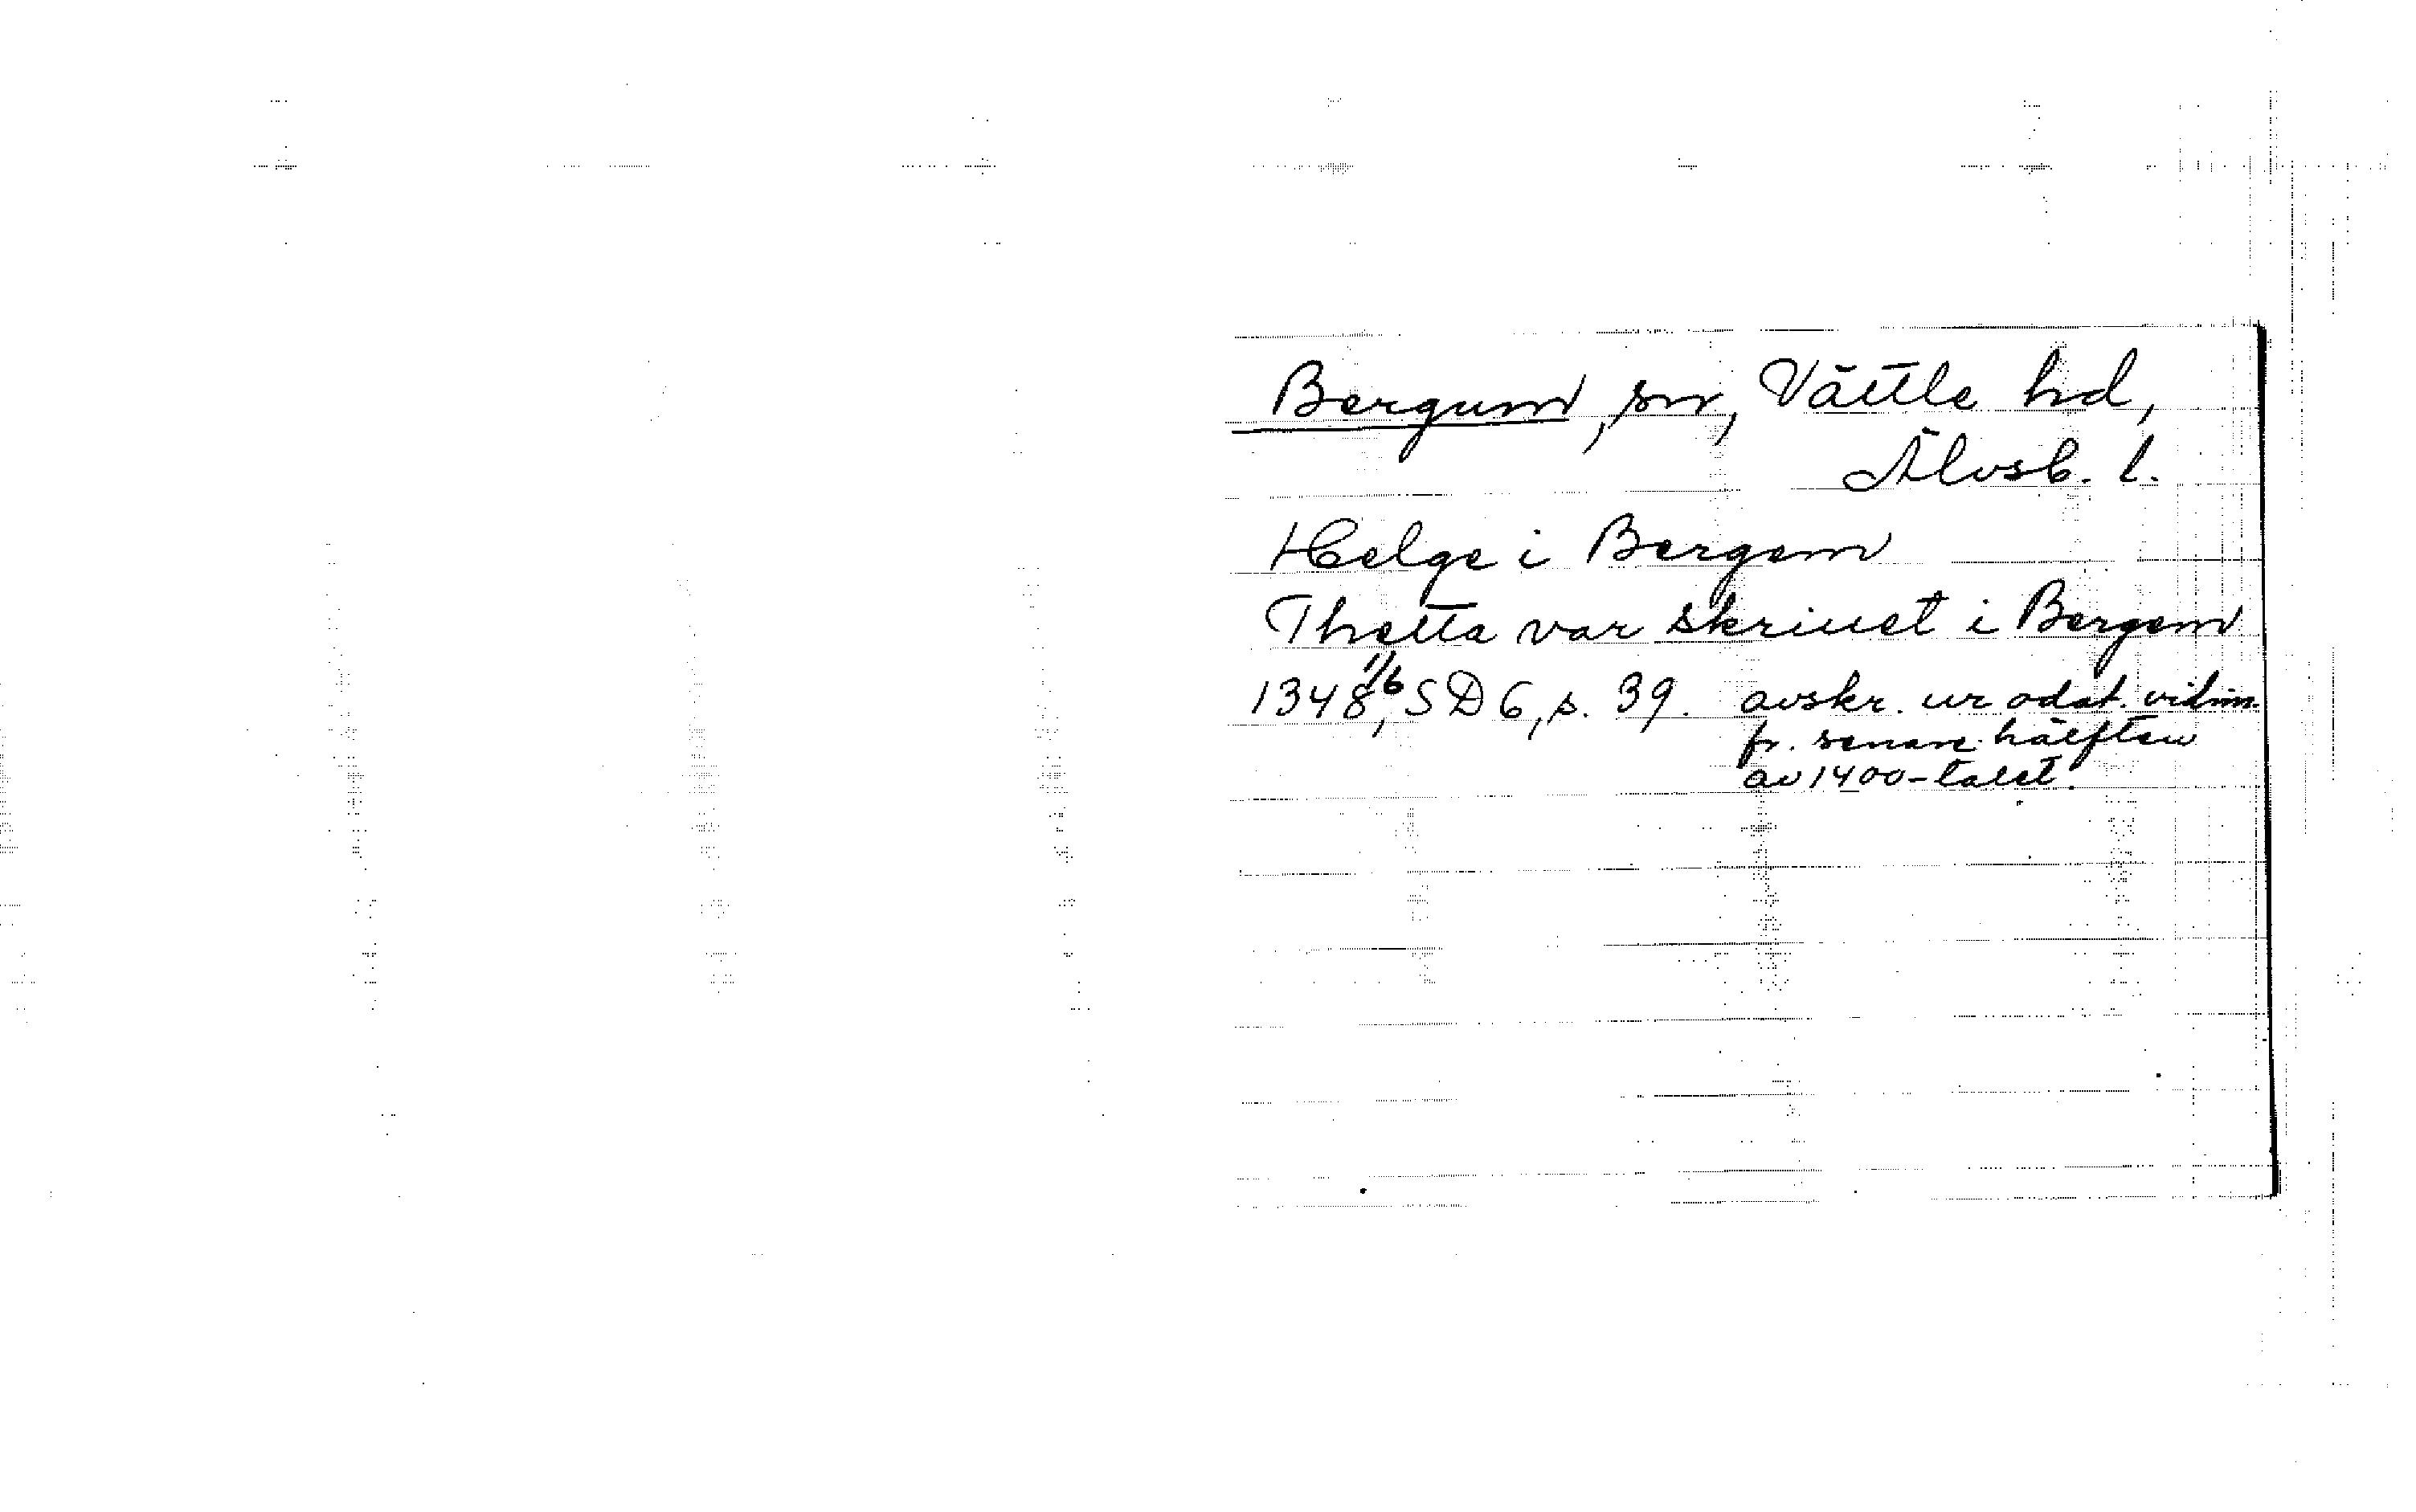 Bergum, sn, Vättle hd,
Älvsb. l.
Helge i Bergem
Thetta var skriuet i Bergem
1348 1/6, SD 6, s. 39. avskr. ur odat. vidim.
fr. senare hälften
av 1400-talet.